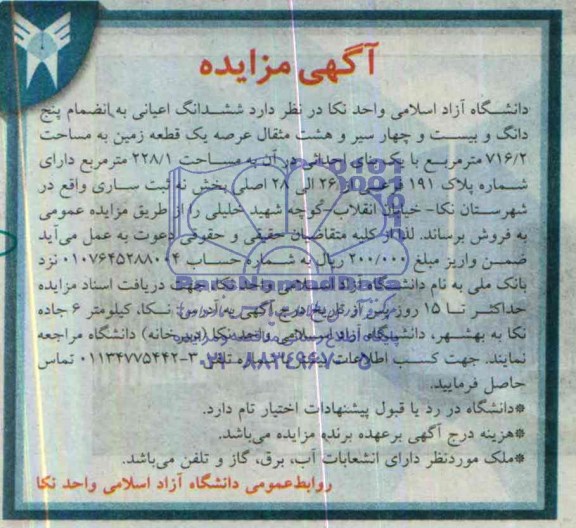 آگهی مزایده
دانشگاه آزاد اسلامی واحد نکا در نظر دارد ششدانگ اعیانی به انضمام پنج
دانگ و بیست و چهار سیر و هشت مثقال عرصه یک قطعه زمین به مساحت
۷۱۶/۲ مترمربع با یک بنای احداثی در آن به مساحت ۲۲۸/۱ مترمربع دارای
شماره پلاک ۱۹۱ فرعی از ۲۶ الی ۲۸ اصلی بخش نه ثبت ساری واقع در
شهرستان نکا- خیابان انقلاب- کوچه شهید خلیلی را از طریق مزایده عمومی
به فروش برساند. لذا از کلیه متقاضیان حقیقی و حقوقی دعوت به عمل می‌آید
ضمن واریز مبلغ ۲۰۰/۰۰۰ ریال به شماره حساب ۰۱۰۷۶۴۵۲۸۸۰۰۴ نزد
بانک ملی به نام دانشگاه آزاد اسلامی واحد نکا جهت دریافت اسناد مزایده
حداکثر تا ۱۵ روز پس از تاریخ درج آگهی به آدرس: نکا، کیلومتر ۶ جاده
نکا به بهشهر، دانشگاه آزاد اسلامی واحد نکا (دبیرخانه) دانشگاه مراجعه
نمایند. جهت کسب اطلاعات با شماره تلفن ۳-۰۱۱۳۴۷۷۵۴۴۲ تماس
حاصل فرمایید.
*دانشگاه در رد یا قبول پیشنهادات اختیار تام دارد.
*هزینه درج آگهی برعهده برنده مزایده می‌باشد.
*ملک موردنظر دارای انشعابات آب، برق، گاز و تلفن می‌باشد.
روابط عمومی دانشگاه آزاد اسلامی واحد نکا